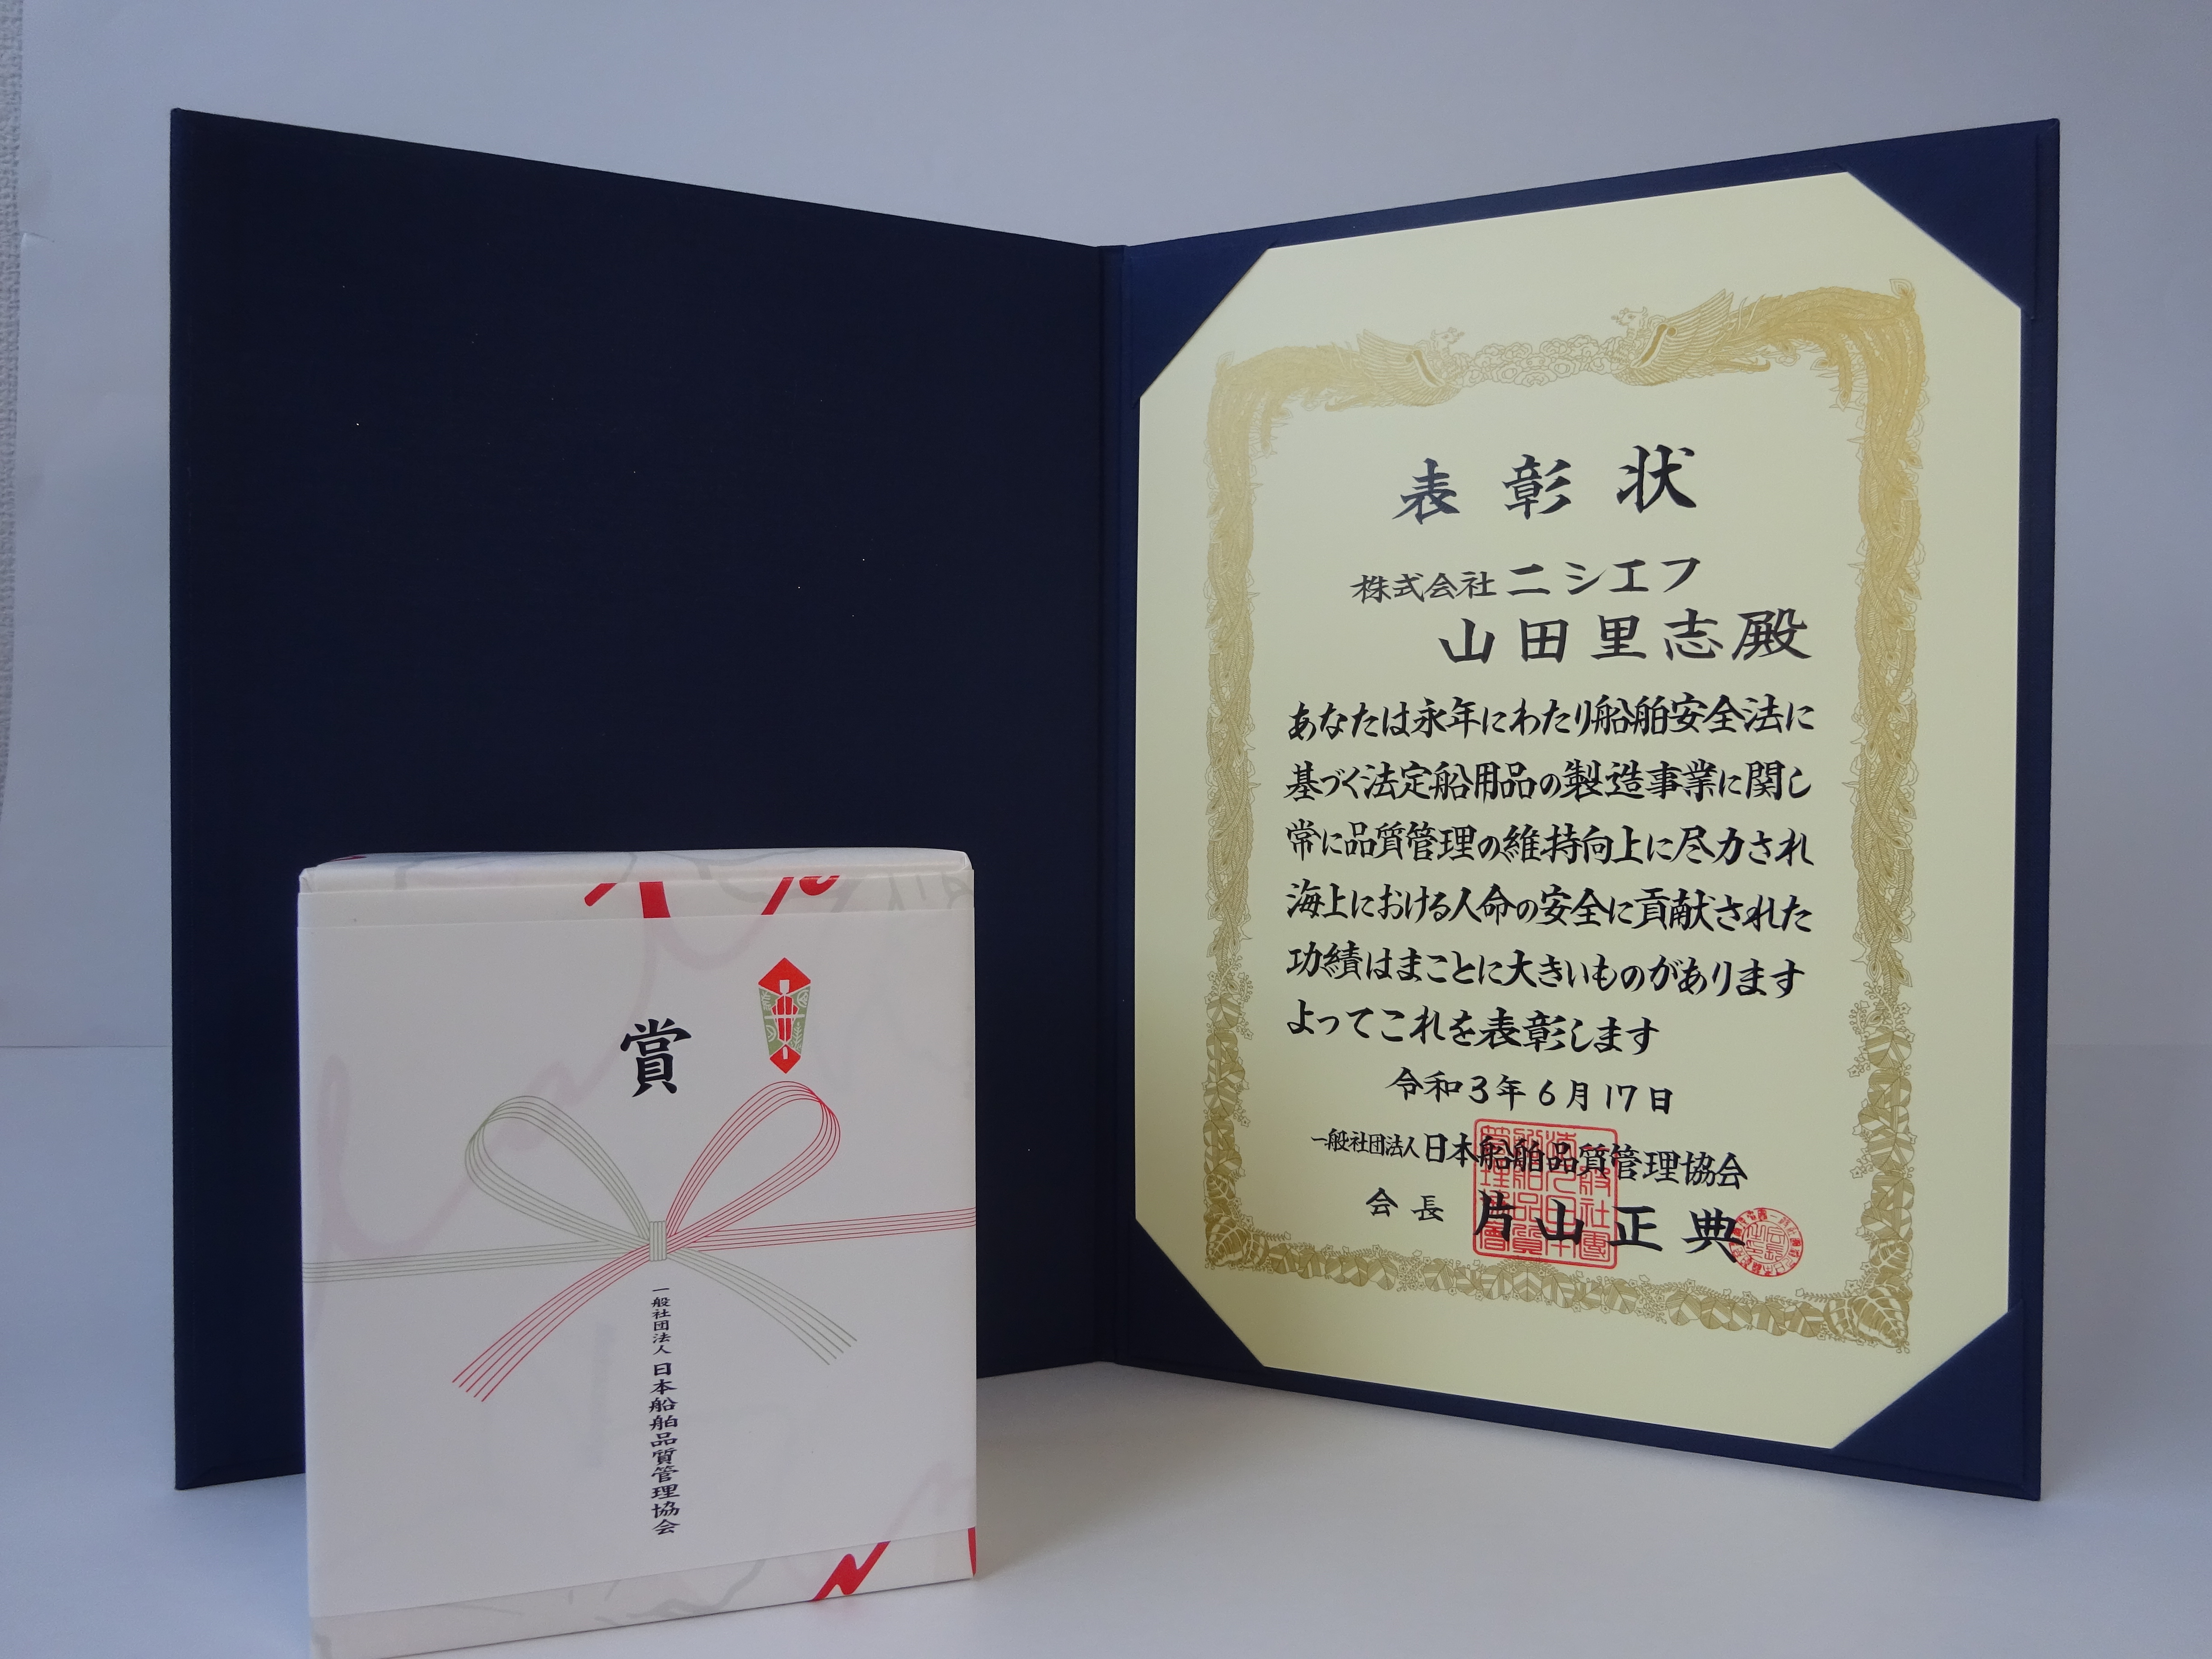 表彰状
株式会社ニシエフ
山田里志殿
あなたは永年にわたり船舶安全法に
基づく法定船用品の製造事業に関し
常に品質管理の維持向上に尽力され
海上における人命の安全に貢献された
功績はまことに大きいものがあります
よってこれを表彰します
令和3年6月17日
一般社団法人日本船舶品質管理協会
会長 片山正典
賞
一般社団法人 日本船舶品質管理協会